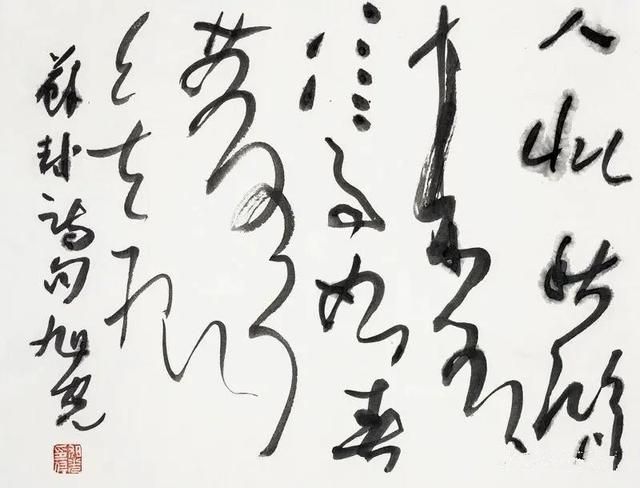 人似秋鸿
来有
信事如春
梦了
无痕
苏轼诗句旭光